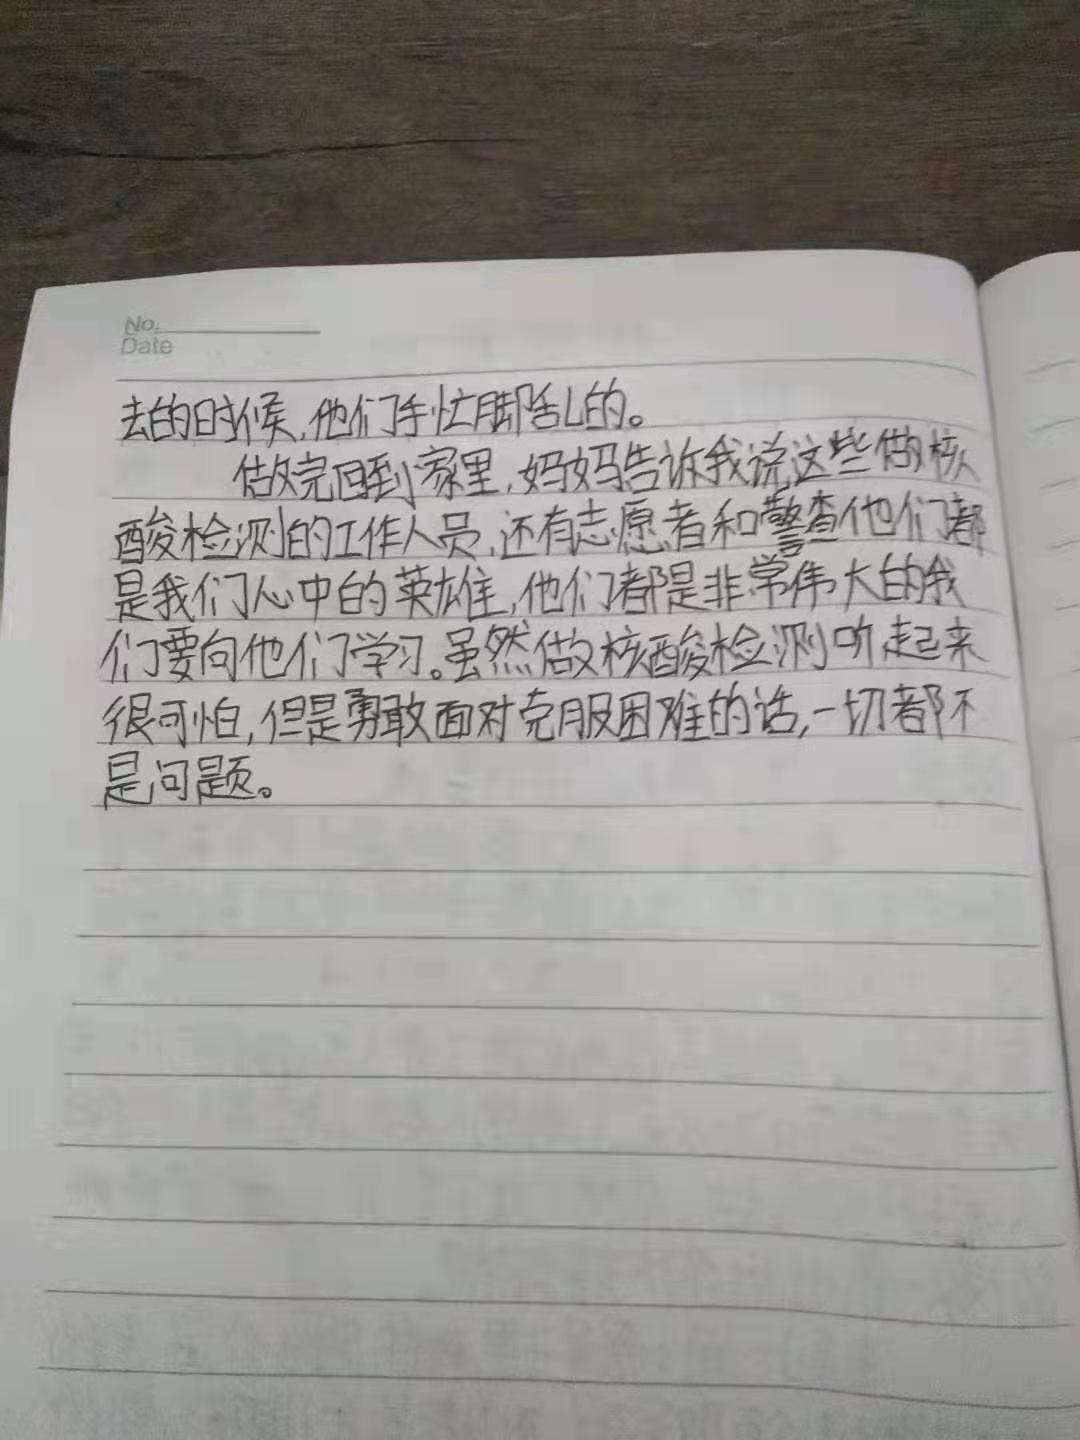 No.
Date
去的时候,他们手忙脚乱的。
做完回到家里,妈妈告诉我说,这些做核
酸检测的工作人员,还有志愿者和警查他们都
是我们心中的英雄,他们都是非常伟大的我
们要向他们学习。虽然做核酸检测听起来
很可怕,但是勇敢面对克服困难的话,一切都不
是问题。